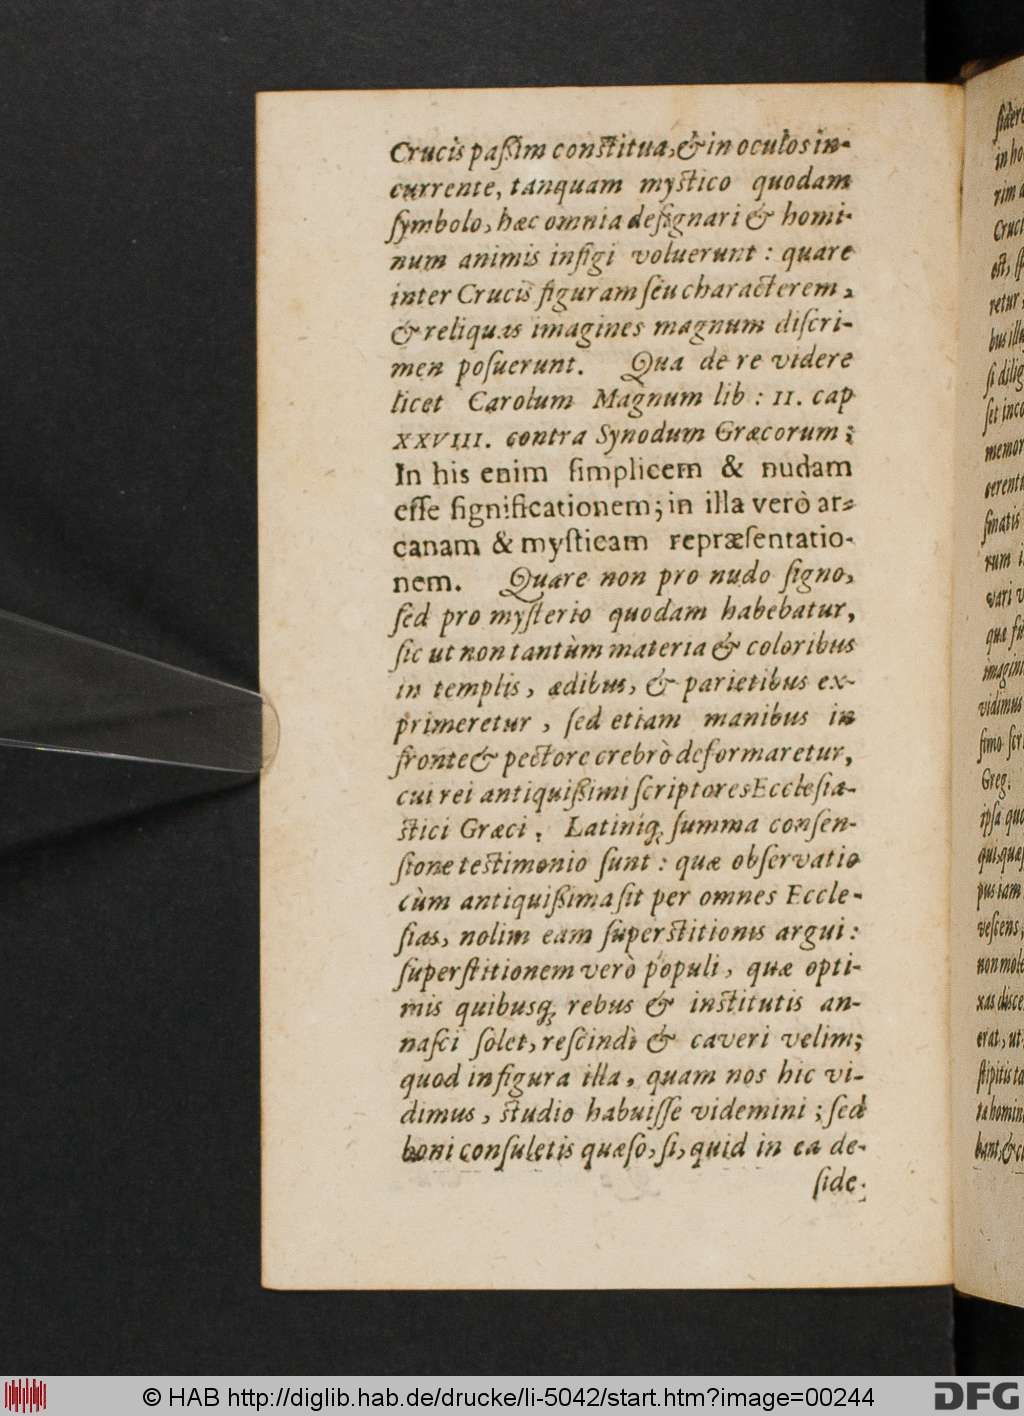 Crucis paſſim conſtitua, & in oculos in-
currente, tanquam myſtico quodam
ſymbolo, hæc omnia deſignari & homi-
num animis infigi voluerunt: quare
inter Crucis figuram ſeu characterem,
& reliquas imagines magnum diſcri-
men poſuerunt. Qua de re videre
licet Carolum Magnum lib: II. cap
XXVIII. contra Synodum Græcorum;
In his enim ſimplicem & nudam
eſſe ſignificationem; in illa verò ar-
canam & myſticam repræſentatio-
nem. Quare non pro nudo ſigno,
ſed pro myſterio quodam habebatur,
ſic ut non tantùm materia & coloribus
in templis, ædibus, & parietibus ex-
primeretur, ſed etiam manibus in
fronte & pectore crebrò deformaretur,
cui rei antiquiſſimi ſcriptores Eccleſia-
ſtici Græci, Latiniq; ſumma conſen-
ſione teſtimonio ſunt: quæ obſervatio
cùm antiquiſſima ſit per omnes Eccle-
ſias, nolim eam ſuperſtitionis argui:
ſuperſtitionem verò populi, quæ opti-
mis quibusq; rebus & inſtitutis an-
naſci ſolet, reſcindi & caveri velim;
quod in figura illa, quam nos hic vi-
dimus, ſtudio habuiſſe videmini; ſed
boni conſuletis quæſo, ſi, quid in ea de-
ſide-
© HAB http://diglib.hab.de/drucke/li-5042/start.htm?image=00244
DFG